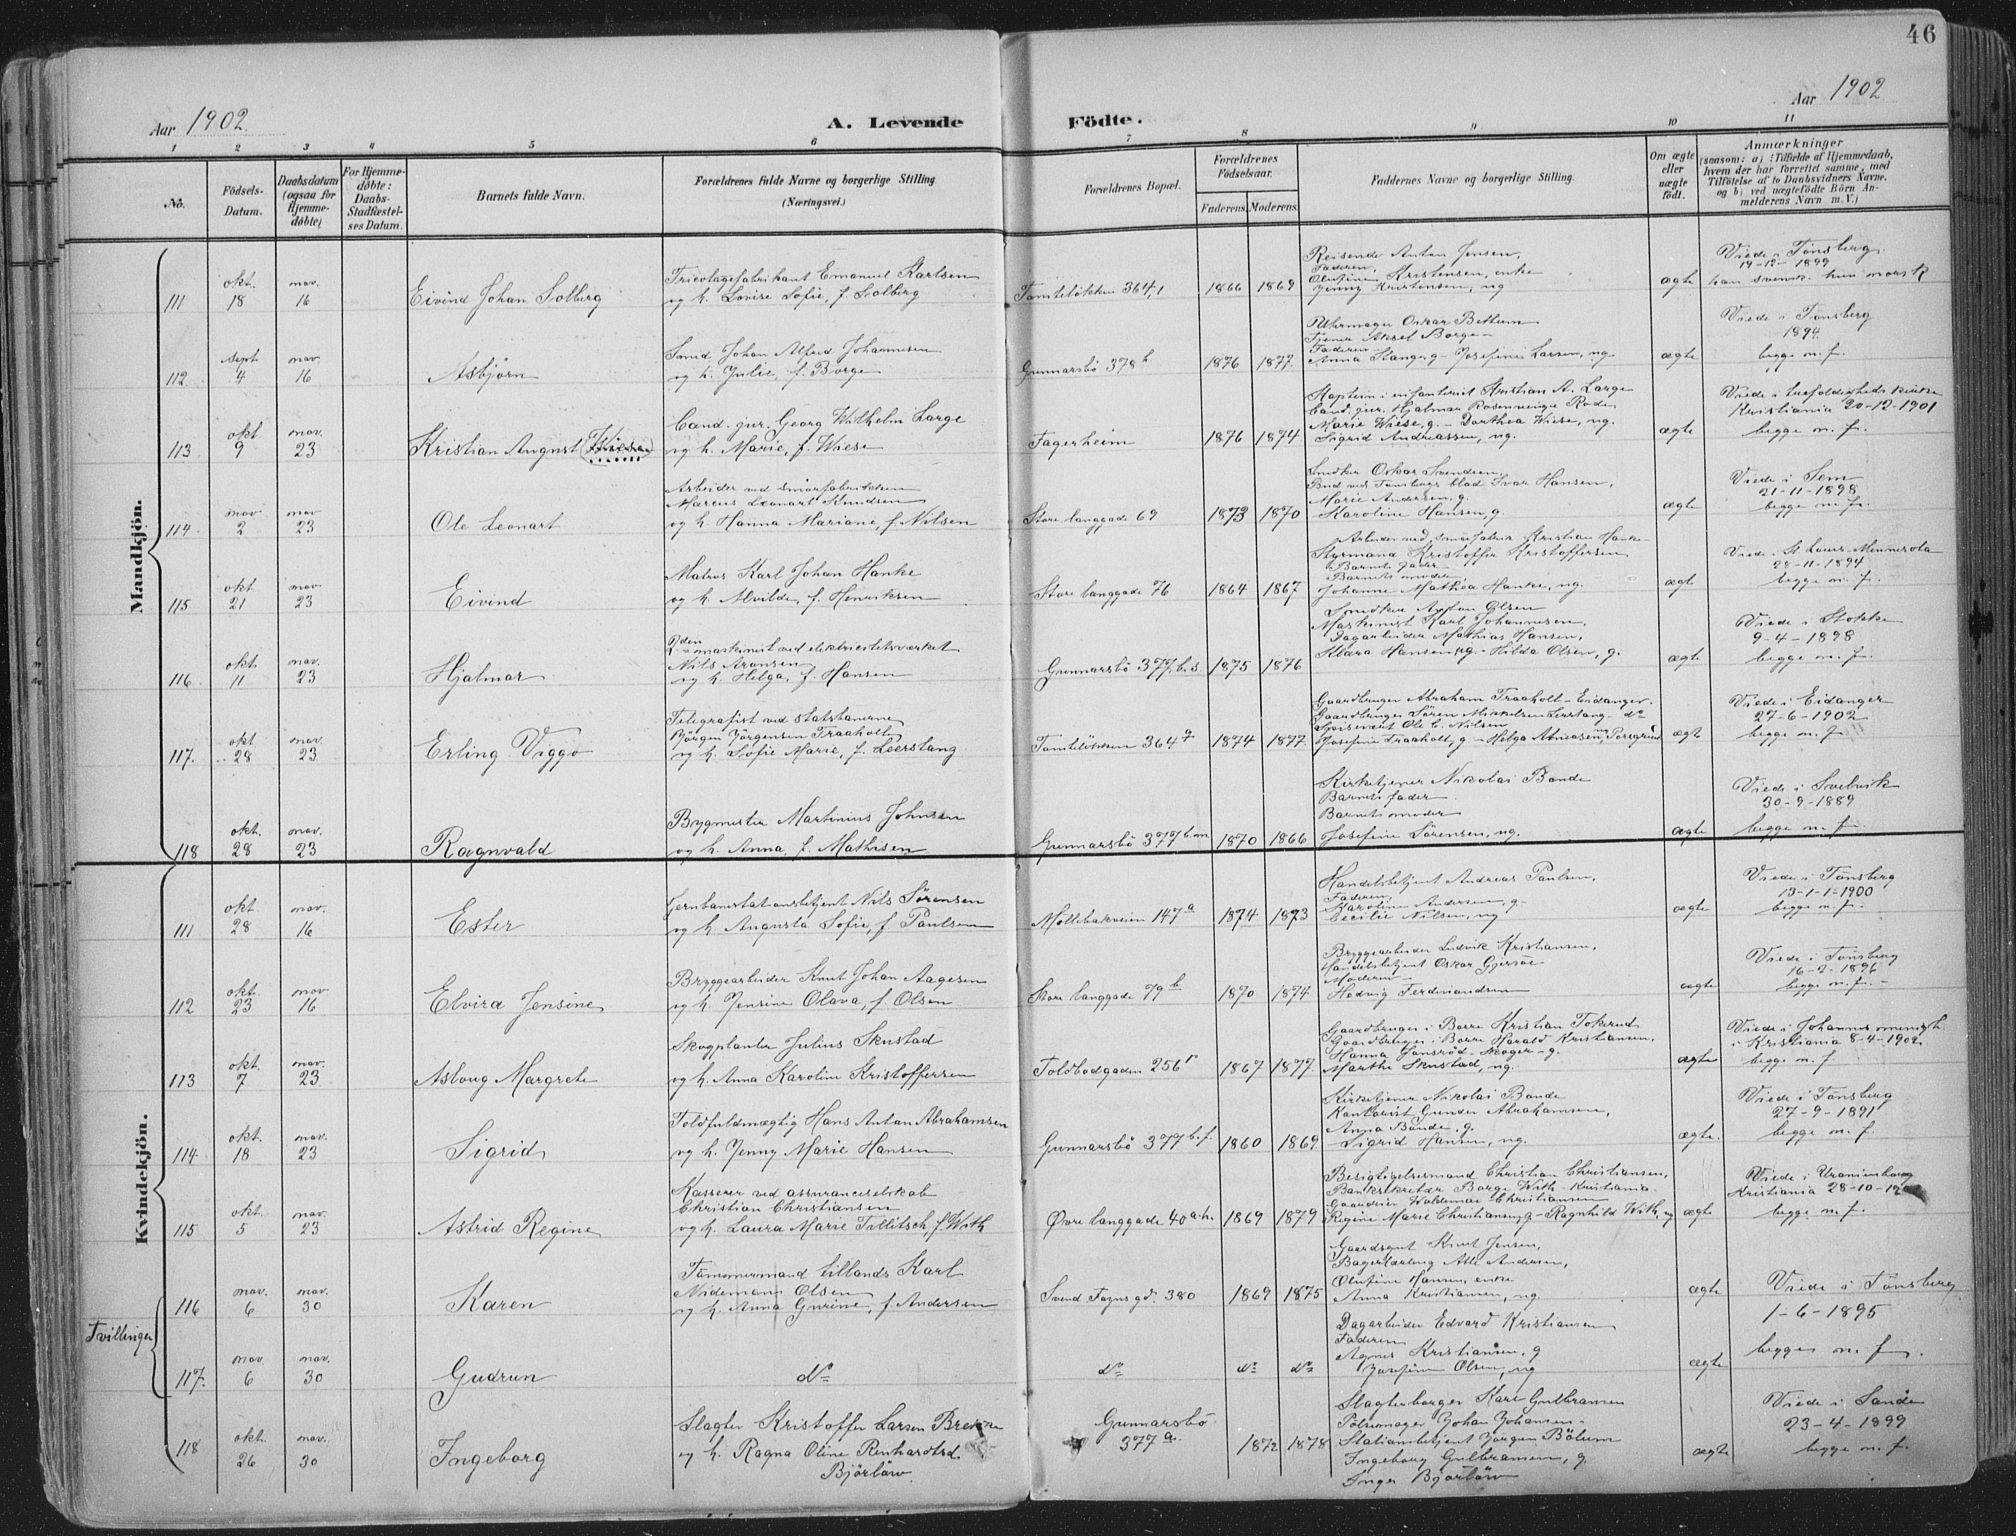 46
Aar 1902.
A. Levende Födte.
Aar 1902
1 2 3 4 5 6 7 8 9 10 11
No.
Födsels-
Datum.
Daabsdatum
(ogsaa for
Hjemme-
døbte)
For Hjemme-
døbte:
Daabs-
Stadfæstel-
ses Datum.
Barnets fulde Navn.
Forældrenes fulde Navne og borgerlige Stilling
(Næringsvei.)
Forældrenes Bopæl.
Forældrenes
Fødselsaar.
Faderens. Moderens.
Faddernes Navne og borgerlige Stilling.
Om ægte
eller
uægte
født.
Anmærkninger
(saasom: a) i Tilfælde af Hjemmedaab,
hvem der har forrettet samme, med
Tilføielse af to Daabsvidners Navne,
og b) ved uægtefødte Börn An-
melderens Navn m. V.)
Mandkjön.
111 okt. 18 nov. 16 Eivind Johan Solberg
Tricotagefabrikant Emanuel Karlsen
og h. Lovise Sofie, f. Solberg
Tomteløkken 364,1 1866 1869
Reisende Anton Jensen,
Faderen,
Olufine Kristensen, enke
Jenny Kristensen, ug
ægte
Viede i Tønsberg
19-12-1899
han svensk hun norsk
112 sept. 4 nov. 16 Asbjørn
Smed Johan Alfred Johannesen
og h. Julie, f. Borge
Gunnarsbö 378 h 1876 1877.
Uhrmager Oskar Bettum
Tjener Aksel Borge
Faderen
Anna Stange g - Josefine Larsen, ug.
ægte
Viede i Tønsberg
1894
begge m. f.
113 okt. 9 nov. 23 Kristian August (Wiese)
Cand. jur. Georg Wilhelm Lange
og h. Marie, f. Wiese
Fagerheim 1876 1874
Kaptein i infanteriet Kristian A. Lange
Cand. jur. Hjalmar Rosenvinge Rode,
Marie Wiese, g. - Dorthea Wiese, ug.
Sigrid Andreassen, ug.
ægte
Viede i trefoldigheds kirke
Kristiania 20-12-1901
begge m. f.
114 nov 2 nov 23 Ole Leonart
Arbeider ved smørfabrikken
Marius Leonart Knudsen
og h. Hanna Mariane, f. Nilsen
Store langgade 69 1873 1870
Snedker Oskar Svendsen,
Bud ved Tønsbergs blad Ivar Hansen,
Marie Andersen, g.
Karoline Hansen, g.
ægte
Viede i Sem
21-11-1898
begge m. f.
115 okt 21 nov. 23 Eivind
Matros Karl Johan Hanke
og h. Alvilde, f. Henriksen
Store langgade 76 1864 1867
Arbeider ved smørfabrik Kristian Hanke
Styrmand Kristoffer Kristoffersen
Barnets fader
Barnets moder
Johanne Mathea Hanke, ug.
ægte
Viede i St Louis-Minnesota
28-11-1894
begge m. f.
116 okt. 11 nov. 23 Hjalmar
2den maskinist ved elektricitetsværket
Nils Aronsen
og h. Helga, f. Hansen
Gunnarsbö 377. b.s. 1875 1876
Snedker Anton Olsen
Maskinist Karl Johannesen
Dagarbeider Mathias Hansen,
Klara Hansen, ug - Hilda Olsen, g.
ægte
Viede i Stokke
9-4-1898
begge m. f.
117. okt 28 nov. 23 Erling Viggo
Telegrafist ved statsbanerne
Jörgen Jörgensen Traaholt
og h. Sofie Marie, f. Leerstang
Tomteløkken 364 q 1874 1877
Gaardbruger Abraham Traaholt - Eidanger.
Gaardbruger Sören Mikkelsen Lerstang - do
Josefine Traaholt, g - Helga
ægt
Viede i Eidanger
27-6-1902
begge m. f.
118 okt. 28 nov. 23 Ragnvald
Brygmester Martinius Johnsen
og h. Anna, f. Mathisen
Gunnarsbö 377 b.m 1870 1866
Kirketjener Nikolai Bonde
Barnets fader
Barnets moder
Josefine Sörensen, ug.
ægte
Viede i Svelvik
30-9-1889
begge m. f.
Kvindekjön.
111 okt 28 nov. 16 Ester
Jernbanestationsbetjent Nils Sørensen
og h. Augusta Sofie, f. Paulsen
Møllebakveien 147 a 1874 1873
Handelsbetjent Andreas Paulsen,
Faderen,
Karoline Andersen, g.
Cecilie Nilsen, ug
ægte
Viede i Tønsberg
13-1-1900
begge m. f.
112 okt. 23 nov 16 Elvira Jensine
Bryggearbeider Knut Johan Aagesen
og h. Jensine Olava, f. Olsen
Store langgade 79 b 1870 1874
Bryggearbeider Ludvik Kristiansen,
Handelsbetjent Oskar Gjersøe
Moderen
Hedvig Ferdinandsen
ægte
Viede i Tønsberg
16-2-1896
begge m. f.
113 okt 7 nov. 23 Aslaug Margrete
Skogplanter Julius Skustad
og h. Anna Karoline Kristoffersen
Toldbodgaden 256 r 1867 1877
Gaardbruger i Borre Kristian Tokerud
Gaardbruger i Borre Harald Kristiansen,
Hanna Jonsrød - Skoger - g.
Marthe Skustad, ug.
ægte
Viede i Johannes menigh.
i Kristiania 8-4-1902
begge m. f
114 okt. 18 nov. 23 Sigrid
Toldfuldmægtig Hans Anton Abrahamsen
og h. Jenny Marie Hansen
Gunnarsbö 377 b.f. 1860 1869
Kirketjener Nikolai Bonde
Kontorist Gunder Abrahamsen,
Anna Bonde, g.
Sigrid Hansen, ug.
ægte.
Viede i Tønsberg
27-9-1891
begge m. f.
115 okt 5 nov. 23 Astrid Regine
Kasserer ved assuranceselskab
Christian Christiansen
og h. Laura Marie Tillitsch, f. With
Øvre langgade 40 a.h. 1869 1879
Besigtigelsesmand Christian Christiansen,
Banksekretær Borge With - Kristiania
Waldemar Christiansen
Regine Marie Christiansen, g - Ragnhild With, ug
ægte
Viede i Uranienborg
Kristiania 28-10-19
begge m. f.
Tvillinger
116 nov. 6 nov. 30 Karen
Tømmermand tillands Karl
Nideman Olsen
og h. Anna Gurine, f. Andersen
Svend Foyns gd. 380 1869 1875
Gaardsgut Knut Jensen,
Bagerlærling Alle Andersen,
Olufine Hansen, enke
Anna Kristiansen, ug.
ægte
Viede i Tønsberg
1-6-1895
begges m. f.
117. nov 6 nov. 30 Gudrun
do
do do do
Dagarbeider Edvard Kristiansen
Faderen
Agnes Kristiansen, g
Josefine Olsen, ug
ægte
118 okt. 26 nov. 30 Ingeborg
Slagter Kristoffer Larsen
og h. Ragna Oline Renhardtsd.
Björlöw
Gunnarsbö
377 a. 1872 1878
Slagterborger Karl Gulbransen
Pølsemager Johan Johansen
Stationsbetjent Jörgen Bölum
Ingeborg Gulbransen, g.
Inger Björlöw
ægte
Viede i Sande
23-4-1899
begge m. f.